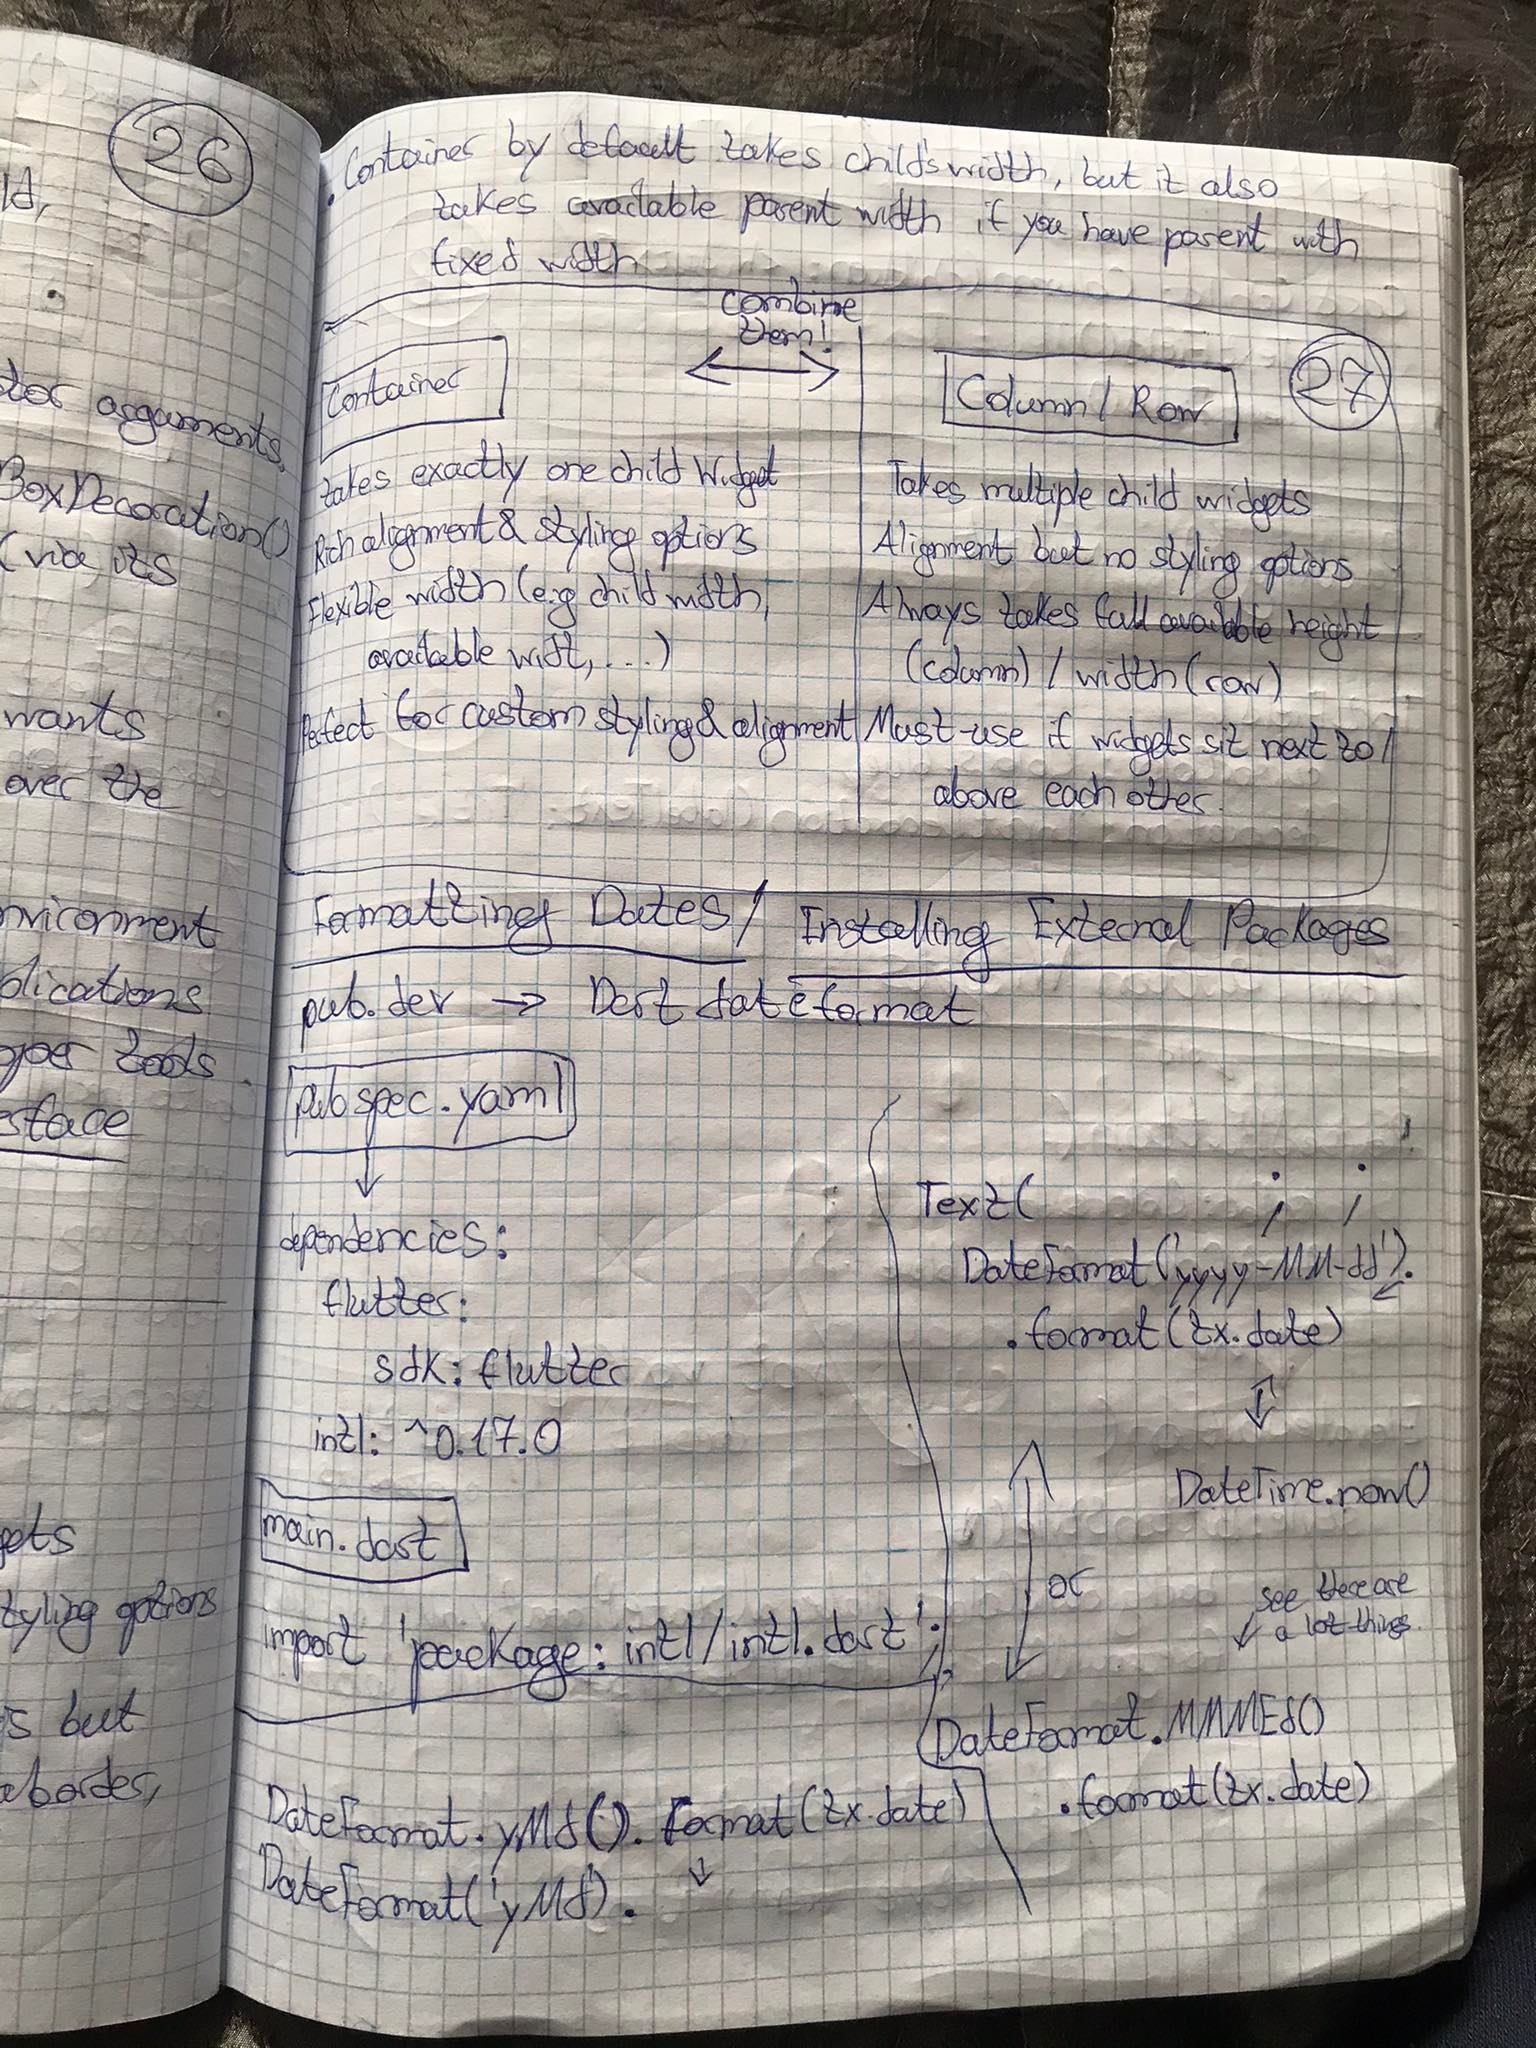 26
ld,
tor arguments,
BoxDecoration()
(via its
wants
over the
nvironment
plications
oper tools
erface
gets
tyling options
s but
a border,
. Container by default takes child's width, but it also
takes available parent width if you have parent with
fixed width
combine
them!
27
Container
Column / Row
takes exactly one child Widget
Rich alignment & styling options
Flexible width (e.g child width,
available widt, ...)
Perfect for custom styling & alignment
Takes multiple child widgets
Alignment but no styling options
Always takes full available height
(column) / width (row)
Must-use if widgets sit next to /
above each other.
Formatting Dates / Installing External Packages
pub.dev → Dart dateformat
pubspec.yaml
dependencies:
flutter:
sdk: flutter
intl: ^0.17.0
main.dart
import 'package: intl/intl.dart';
DateFormat.yMd(). format(tx.date)
DateFormat('yMd').
Text(
/ /
DateFormat('yyyy-MM-dd').
.format(tx.date)
DateTime.now()
or
see there are
a lot things.
DateFormat.MMMEd()
.format(tx.date)